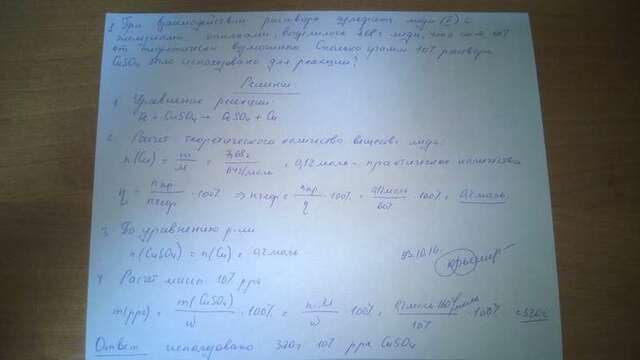 При взаимодействии раствора сульфата меди (II) с
железными опилками, выделилось 7,68 г меди, что сост. 60%
от теоретически возможного. Сколько грамм 10% раствора
CuSO4 было использовано для реакции?
Решение
1. Уравнение реакции:
Fe + CuSO4 → FeSO4 + Cu
2. Расчет теоретического количества вещества меди:
n(Cu) = m/M = 7,68г/64г/моль = 0,12 моль - практическое количество
η = nпр/nтеор · 100% ⇒ nтеор = nпр/η · 100% = 0,12 моль/60% · 100% = 0,2 моль.
3. По уравнению р-ции
n(CuSO4) = n(Cu) = 0,2 моль
07.10.16
4. Расчет массы 10% рра
m(рра) = m(CuSO4)/ω · 100% = n·M/ω · 100% = 0,2 моль·160г/моль/10% · 100% = 320г
Ответ: использовано 320г 10% рра CuSO4